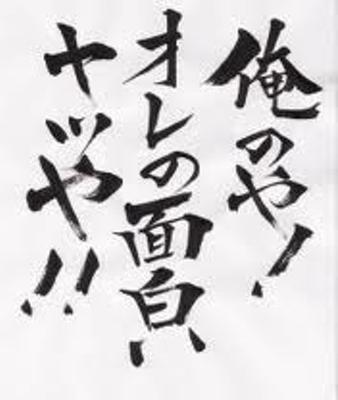 俺のや!
オレの面白い
ヤツや!!